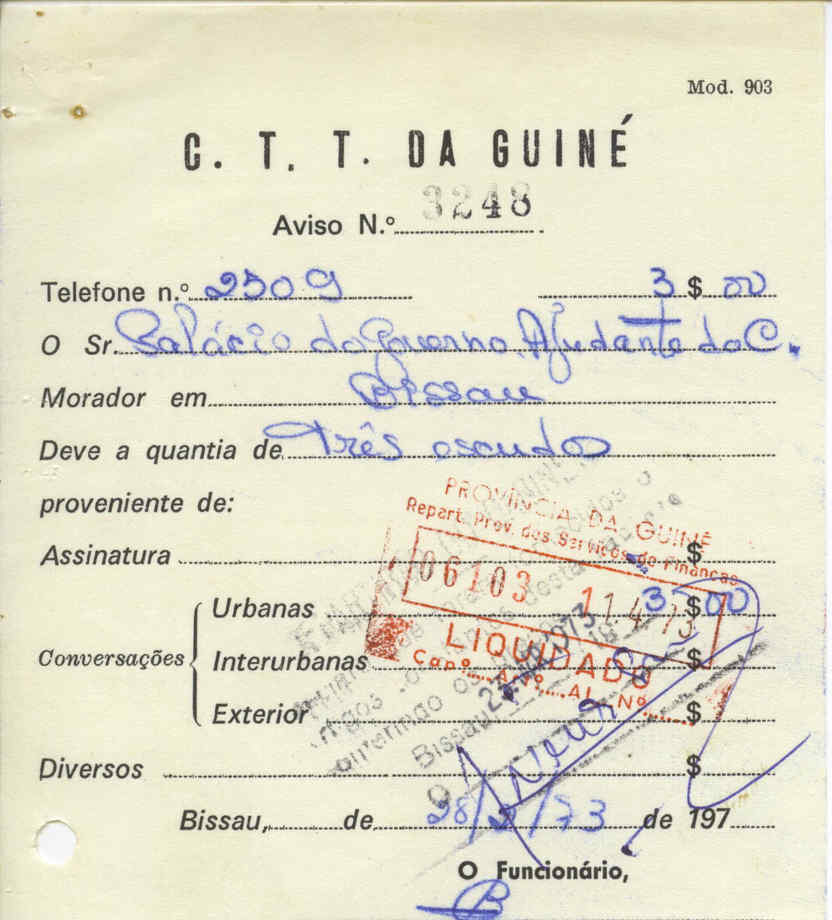 Mod. 903
C. T. T. DA GUINÉ
Aviso N.º 3248
Telefone n.º 2509 3 $ 00
O Sr. Palácio do Governo, Ajudante do C.
Morador em Bissau
Deve a quantia de três escudos
proveniente de:
PROVÍNCIA DA GUINÉ
Repart. Prov. dos Serviços de Finanças
Assinatura $
06103 11.4.73
Conversações
Urbanas 3 $ 00
LIQUIDADO
Interurbanas $
Cap.º Art.º Al. Nº
Exterior $
Bissau
Diversos $
Bissau, de 28/2/73 de 197
O Funcionário,